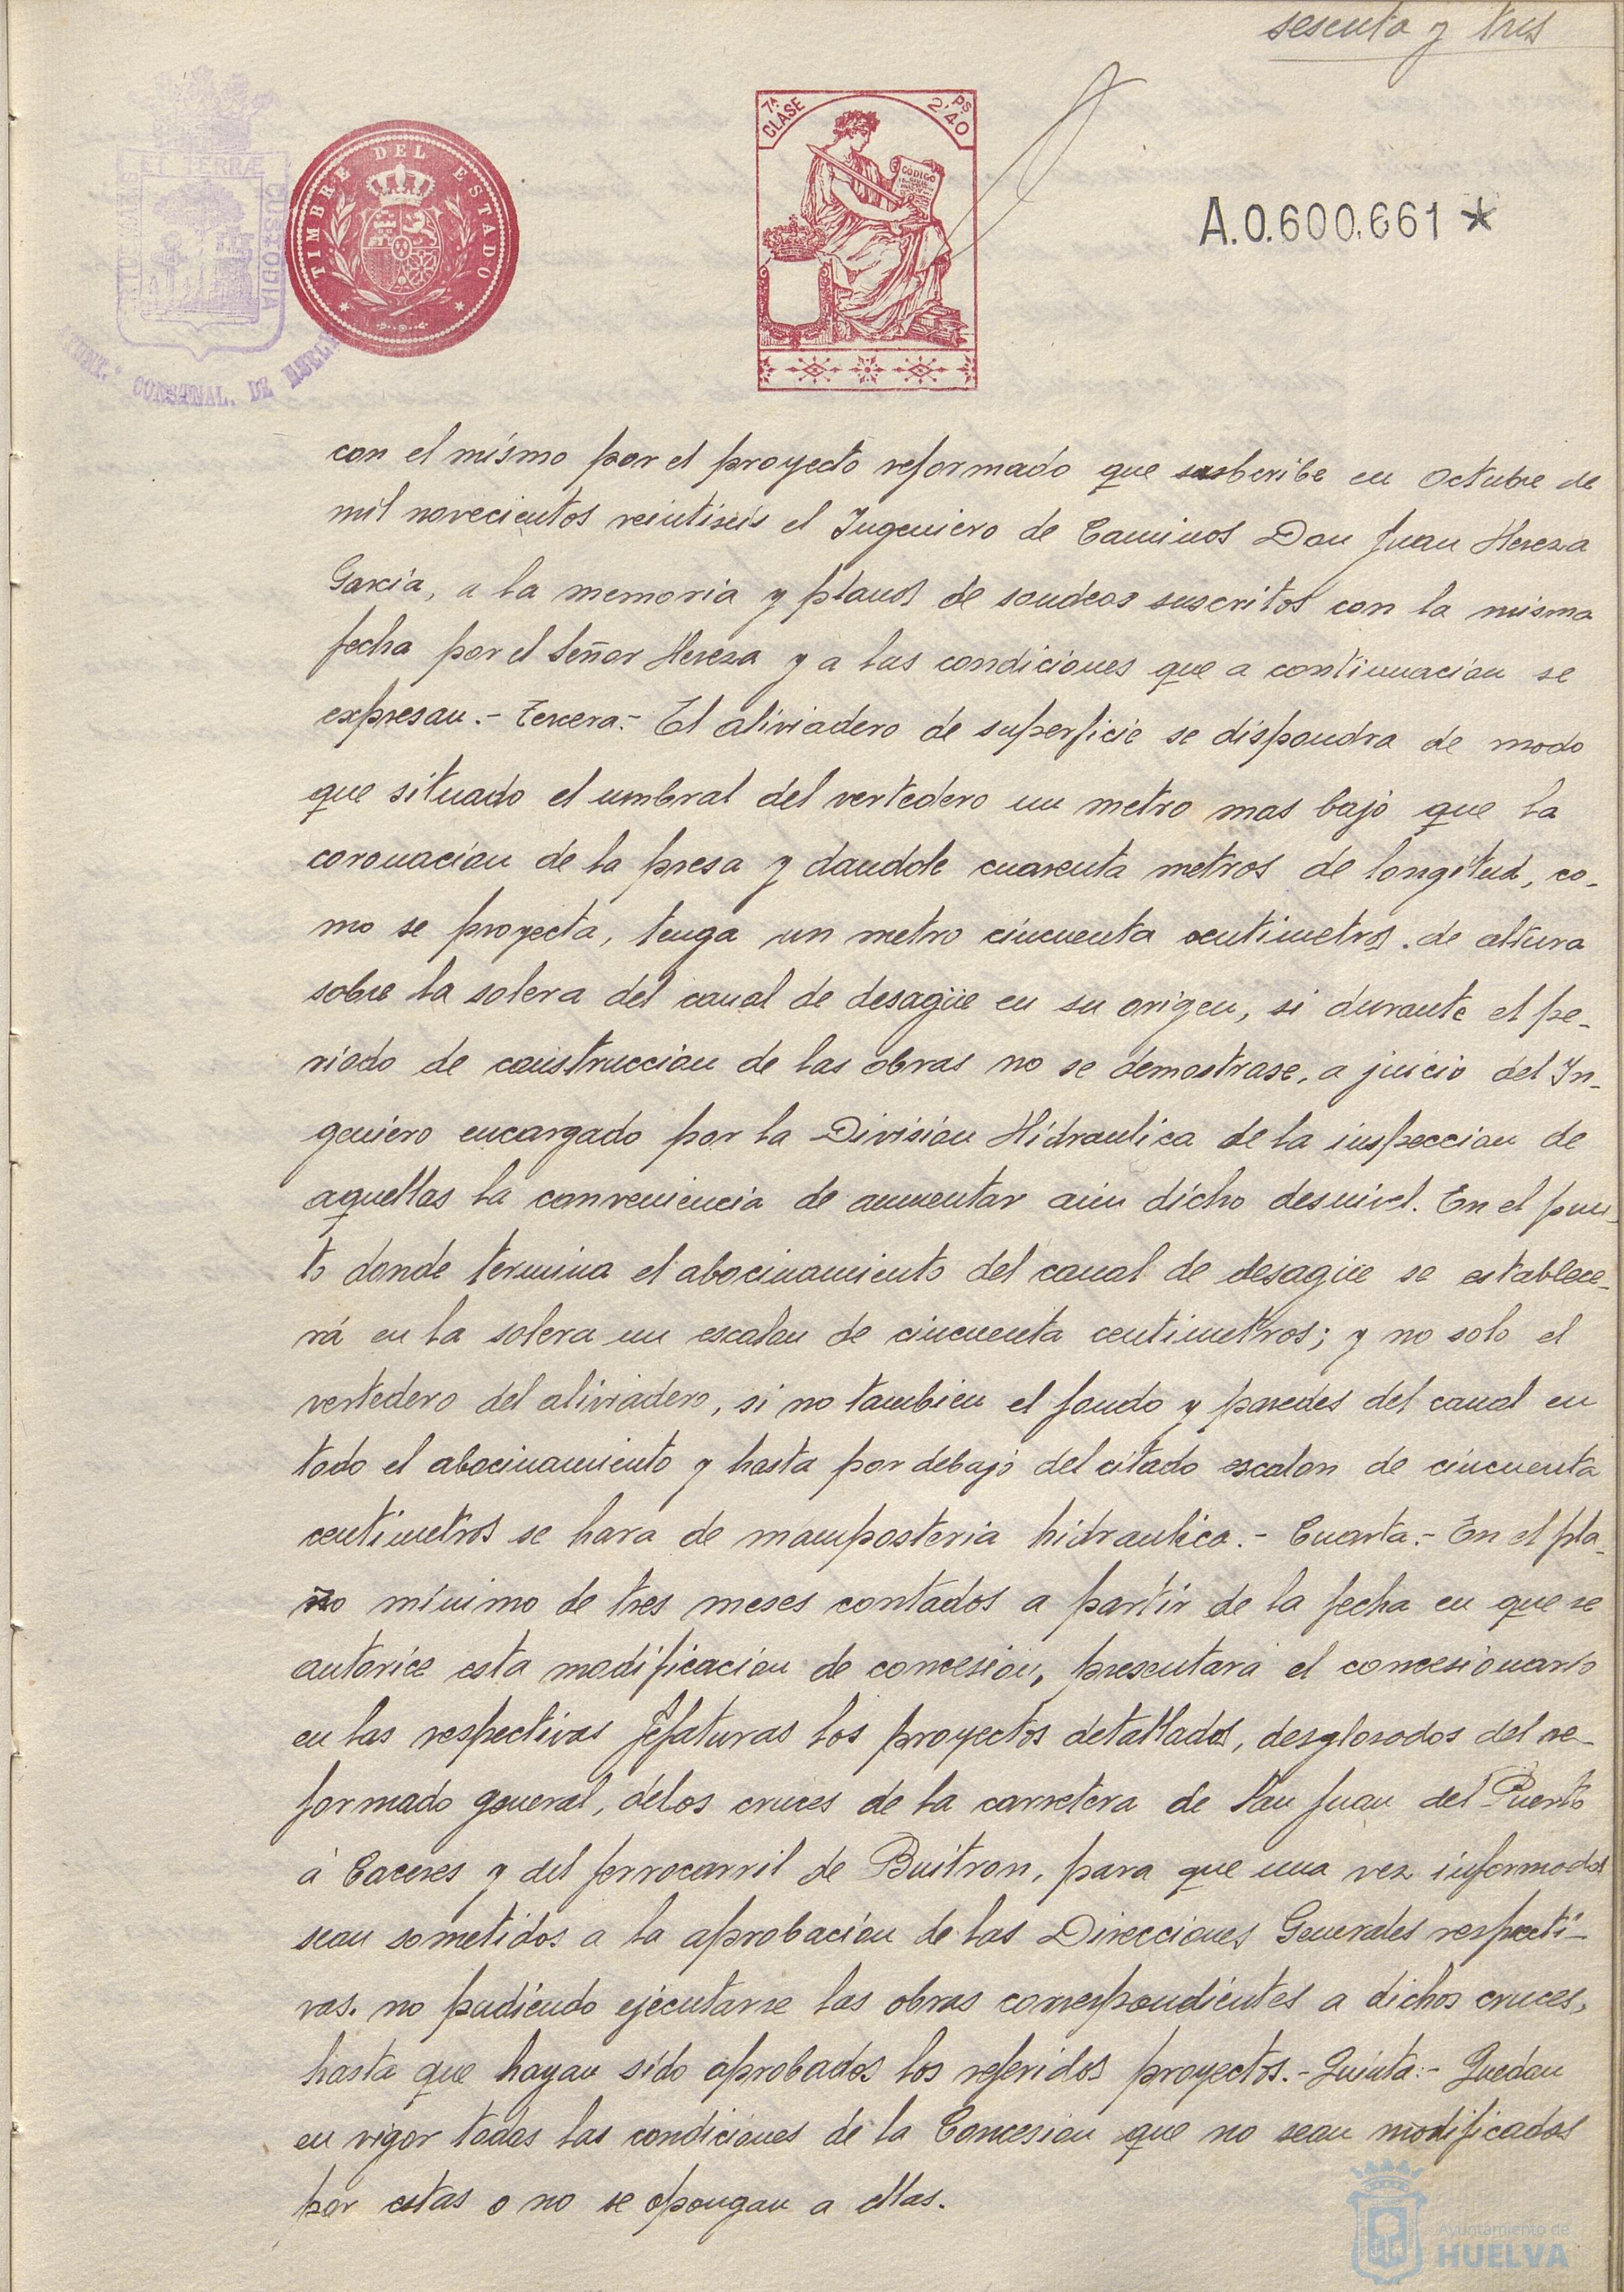 sesenta y tres
TIMBRE DEL ESTADO
7ª CLASE
Pts 2'40
CODIGO
A.0.600.661 *
TERRÆ
CUSTODIA
CONSTNAL. DE HUELVA
con el mismo por el proyecto reformado que suscribe en Octubre de
mil novecientos veintiseis el Ingeniero de Caminos Don Juan Hereza
Garcia, a la memoria y planos de sondeos suscritos con la misma
fecha por el Señor Hereza y a las condiciones que a continuacion se
expresan.- Tercera.- El aliviadero de superficie se dispondra de modo
que situado el umbral del vertedero un metro mas bajo que la
coronacion de la presa y dandole cuarenta metros de longitud, co-
mo se proyecta, tenga un metro cincuenta centimetros. de altura
sobre la solera del canal de desagüe en su origen, si durante el pe-
riodo de construccion de las obras no se demostrase, a juicio del In-
geniero encargado por la Division Hidraulica de la inspeccion de
aquellas la conveniencia de aumentar aún dicho desnivel. En el pun-
to donde termina el abocinamiento del canal de desagüe se establece-
rá en la solera un escalon de cincuenta centimetros; y no solo el
vertedero del aliviadero, si no tambien el fondo y paredes del canal en
todo el abocinamiento y hasta por debajo del citado escalon de cincuenta
centimetros se hara de mamposteria hidraulica.- Cuarta.- En el pla-
zo minimo de tres meses contados a partir de la fecha en que se
autorice esta modificacion de concesion, presentara el concesionario
en las respectivas Jefaturas los proyectos detallados, desglosados del re-
formado general, de los cruces de la carretera de San Juan del Puerto
á Caceres y del ferrocarril de Buitron, para que una vez informados
sean sometidos a la aprobacion de las Direcciones Generales respecti-
vas. no pudiendo ejecutarse las obras correspondientes a dichos cruces,
hasta que hayan sido aprobados los referidos proyectos.- Quinta:- Quedan
en vigor todas las condiciones de la Concesion que no sean modificadas
por estas o no se opongan a ellas.
Ayuntamiento de
HUELVA